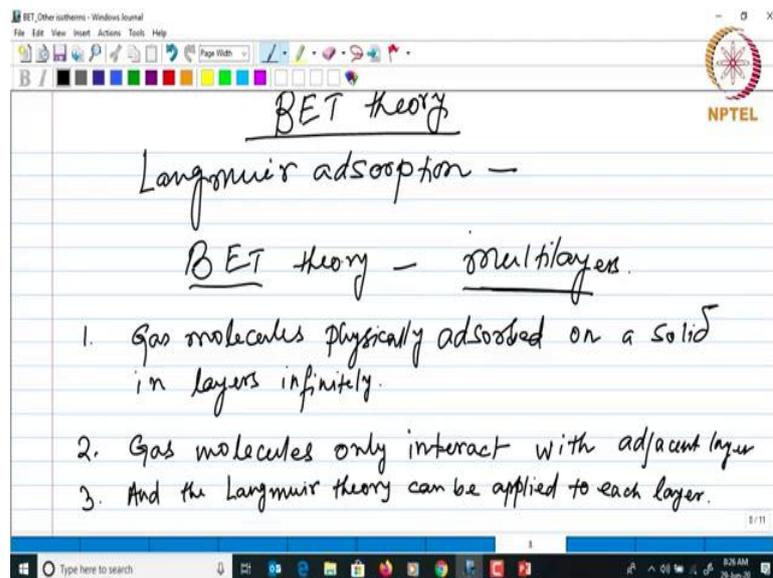 BET_Other isotherms - Windows Journal
File Edit View Insert Actions Tools Help
Page Width
B I
NPTEL
BET theory
Langmuir adsorption -
BET theory - multilayers.
1. Gas molecules physically adsorbed on a solid
in layers infinitely.
2. Gas molecules only interact with adjacent layer
3. And the Langmuir theory can be applied to each layer.
8/11
Type here to search
8:26 AM
29-Jun-20